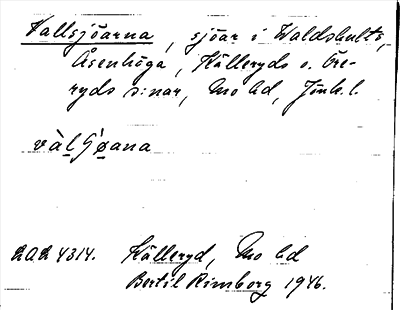 Vallsjöarna, sjöar i Valdshults,
Åsenhöga, Källeryds o. Öre-
ryds s:nar, Mo hd, Jönk. l.
Källeryd, Mo hd
Bertil Rimborg 1946.